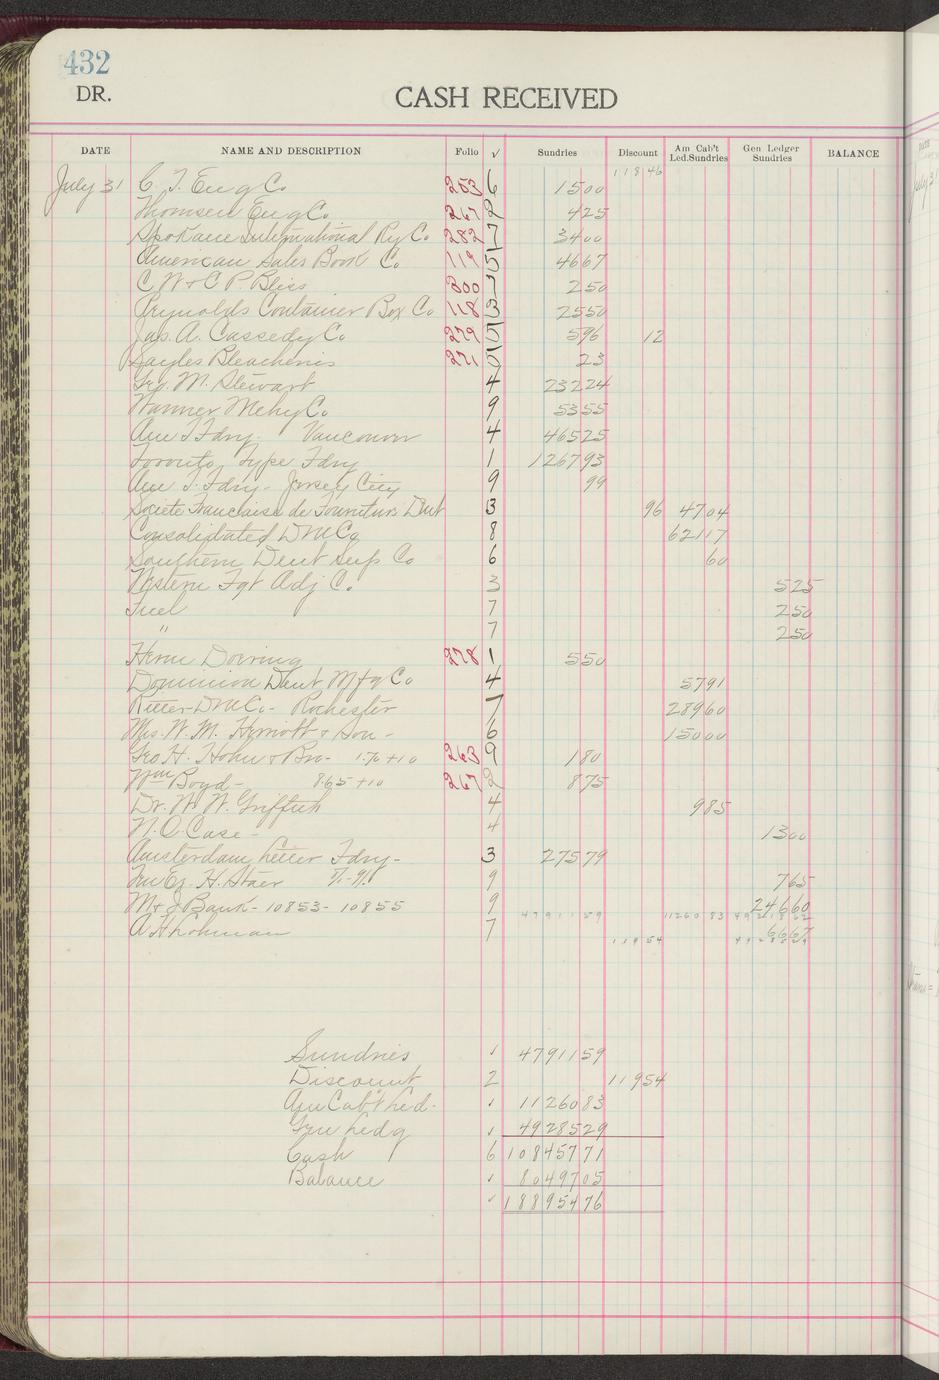 432
DR.
CASH RECEIVED
DATE NAME AND DESCRIPTION Folio √ Sundries Discount Am Cab't Led.Sundries Gen Ledger Sundries BALANCE
11846
July 31 C. T. Eng Co 253 6 1500
Thomsen Eng Co 267 2 425
Spokane International Ry Co 282 7 3400
American Sales Book Co 119 5 4667
C W & E P. Bliss 300 7 250
Reynolds Container Box Co 118 3 2550
Jas. A. Cassedy Co 279 5 596 12
Sayles Bleacheries 271 5 23
Geo. M. Stewart 4 23224
Warner Mchy Co 9 5355
Am T Fdry. Vancouver 4 46525
Toronto Type Fdry 1 126793
Am T. Fdry - Jersey City 9 99
Societe Francaise de Fourniturs Dent 3 96 4704
Consolidated D M Co 8 62117
Southern Dent Sup Co 6 60
Western Fgt Adj C. 3 525
Fuel 7 250
" 7 250
Herm Doering 278 1 550
Dominion Dent Mfg Co 4 5791
Ritter D M Co - Rochester 7 28960
Mrs. W. M. Herriott & Son - 6 15000
Geo H. Hohn & Bro - 1.70 + 10 263 9 180
Wm Boyd - 8.65 + 10 267 2 875
Dr. W. W. Griffith 4 985
N. O. Case - 4 1300
Amsterdam Letter Fdry - 3 27579
H. Staer 9 765
M & J Bank - 10853 - 10855 9 24660
4791159 1126083
7 6667
11954 4928529
Sundries 4791159
Discount 2 11954
Am Cab't Led. 1126083
Gen Ledg 4928529
Cash 6 10845771
Balance 8049705
18895476